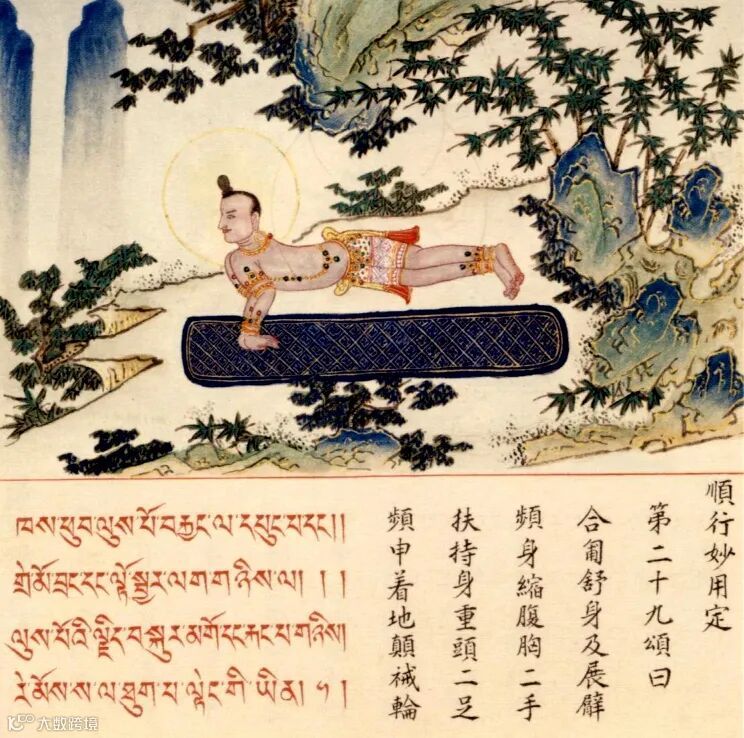 ཁས་ཕུབ་ལུས་པོ་བརྐྱང་ལ་དཔུང་པ་དང།།
གྲེ་མོ་བྲང་དང་ལྟོ་སྦྱར་ལག་གཉིས་ལ། ། །
ལུས་པོའི་ལྗིད་བསྐུར་མགོ་དང་རྐང་པ་གཉིས།
རེ་མོས་ས་ལ་ཐུག་པ་ལྟེང་གི་ཡིན། །
順行妙用定
第二十九頌曰
合匍舒身及展臂
頻身縮腹胸二手
扶持身重頭二足
頻申着地顛祴輪
大数跨境